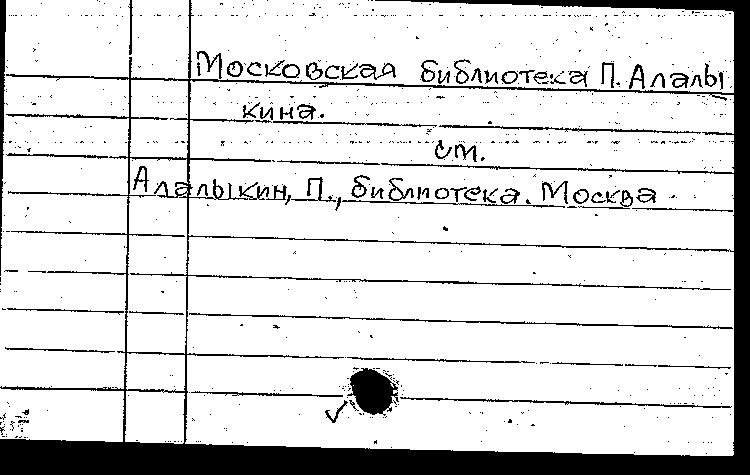 Московская библиотека П. Алалы
кина.
см.
Алалыкин, П., библиотека. Москва